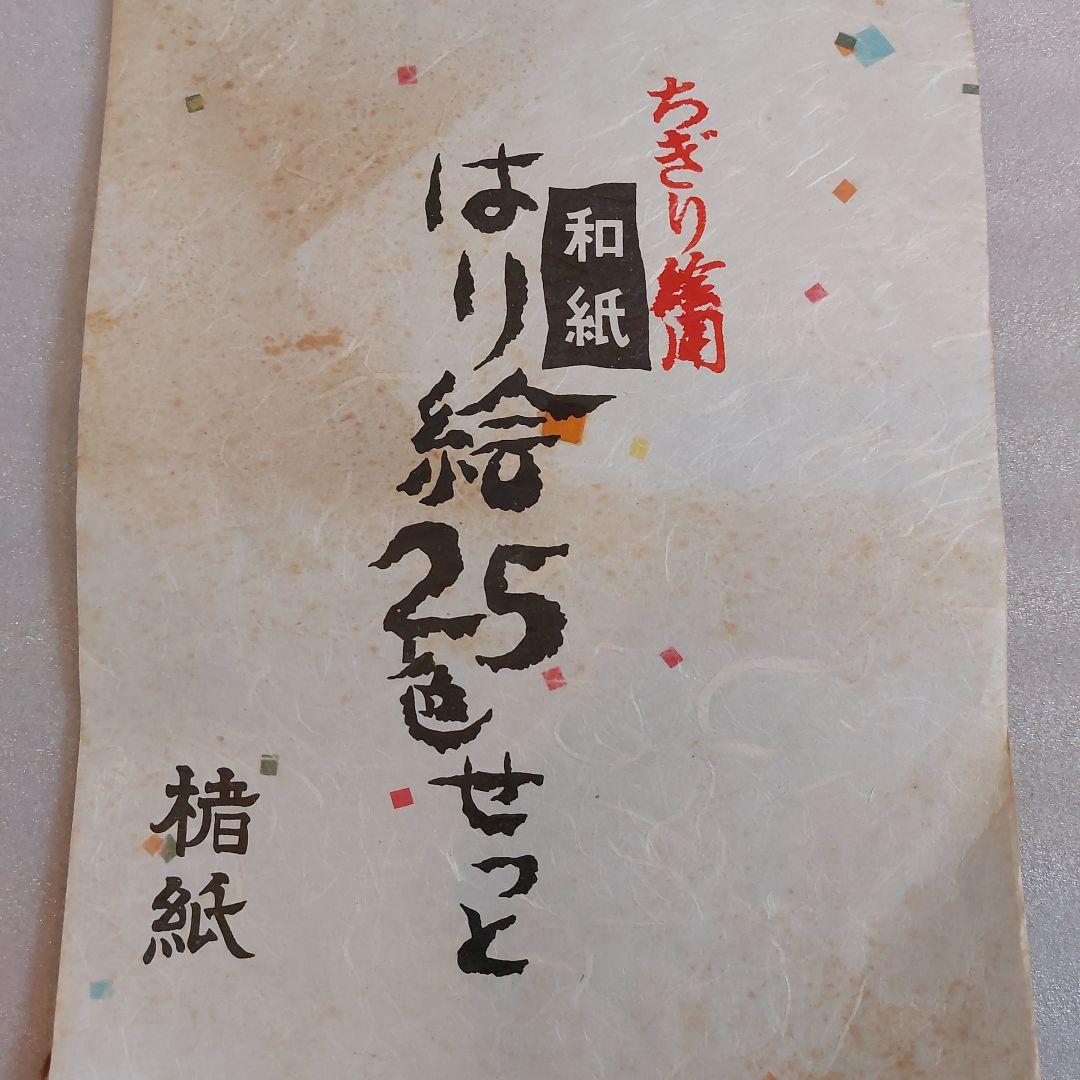 ちぎり絵用
和紙
はり絵25色せっと
楮紙